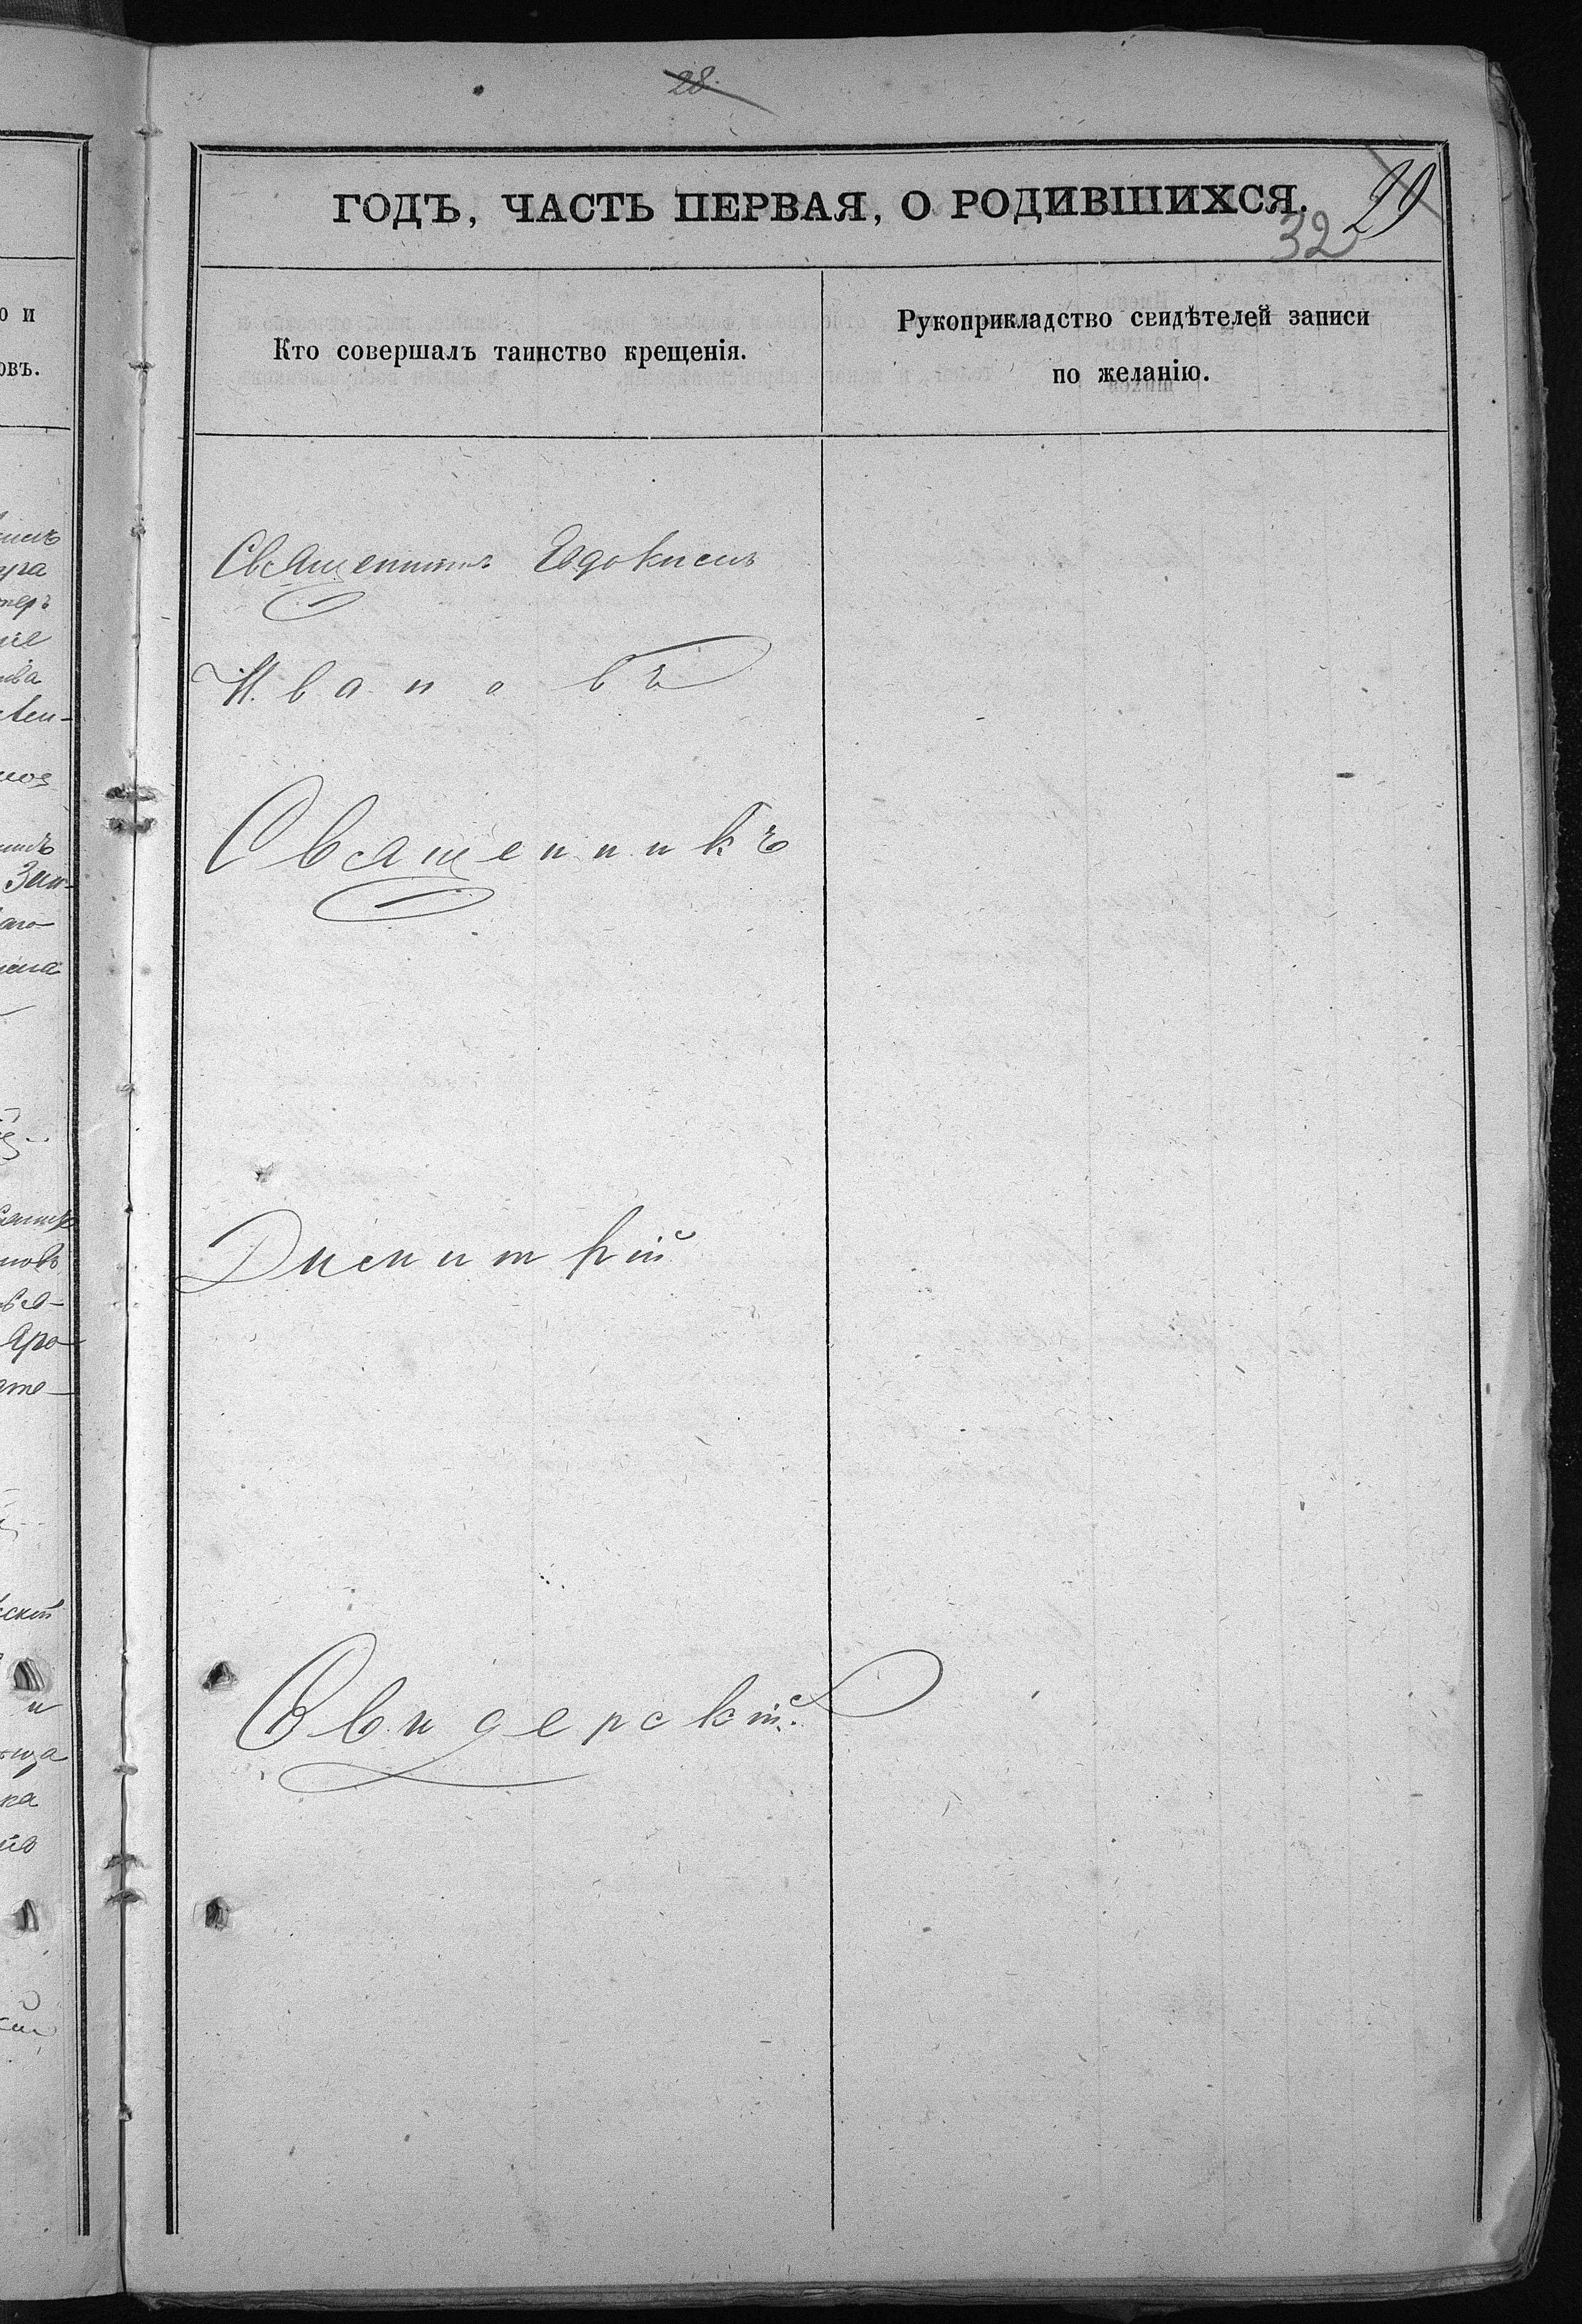 28
ГОДЪ, ЧАСТЬ ПЕРВАЯ, О РОДИВШИХСЯ.
29
32
Кто совершалъ таинство крещенія.
Рукоприкладство свидѣтелей записи
по желанію.
о и
овъ.
Священникъ Евдокимъ
Ивановъ
Священникъ
Димитрій
Свидерскій.